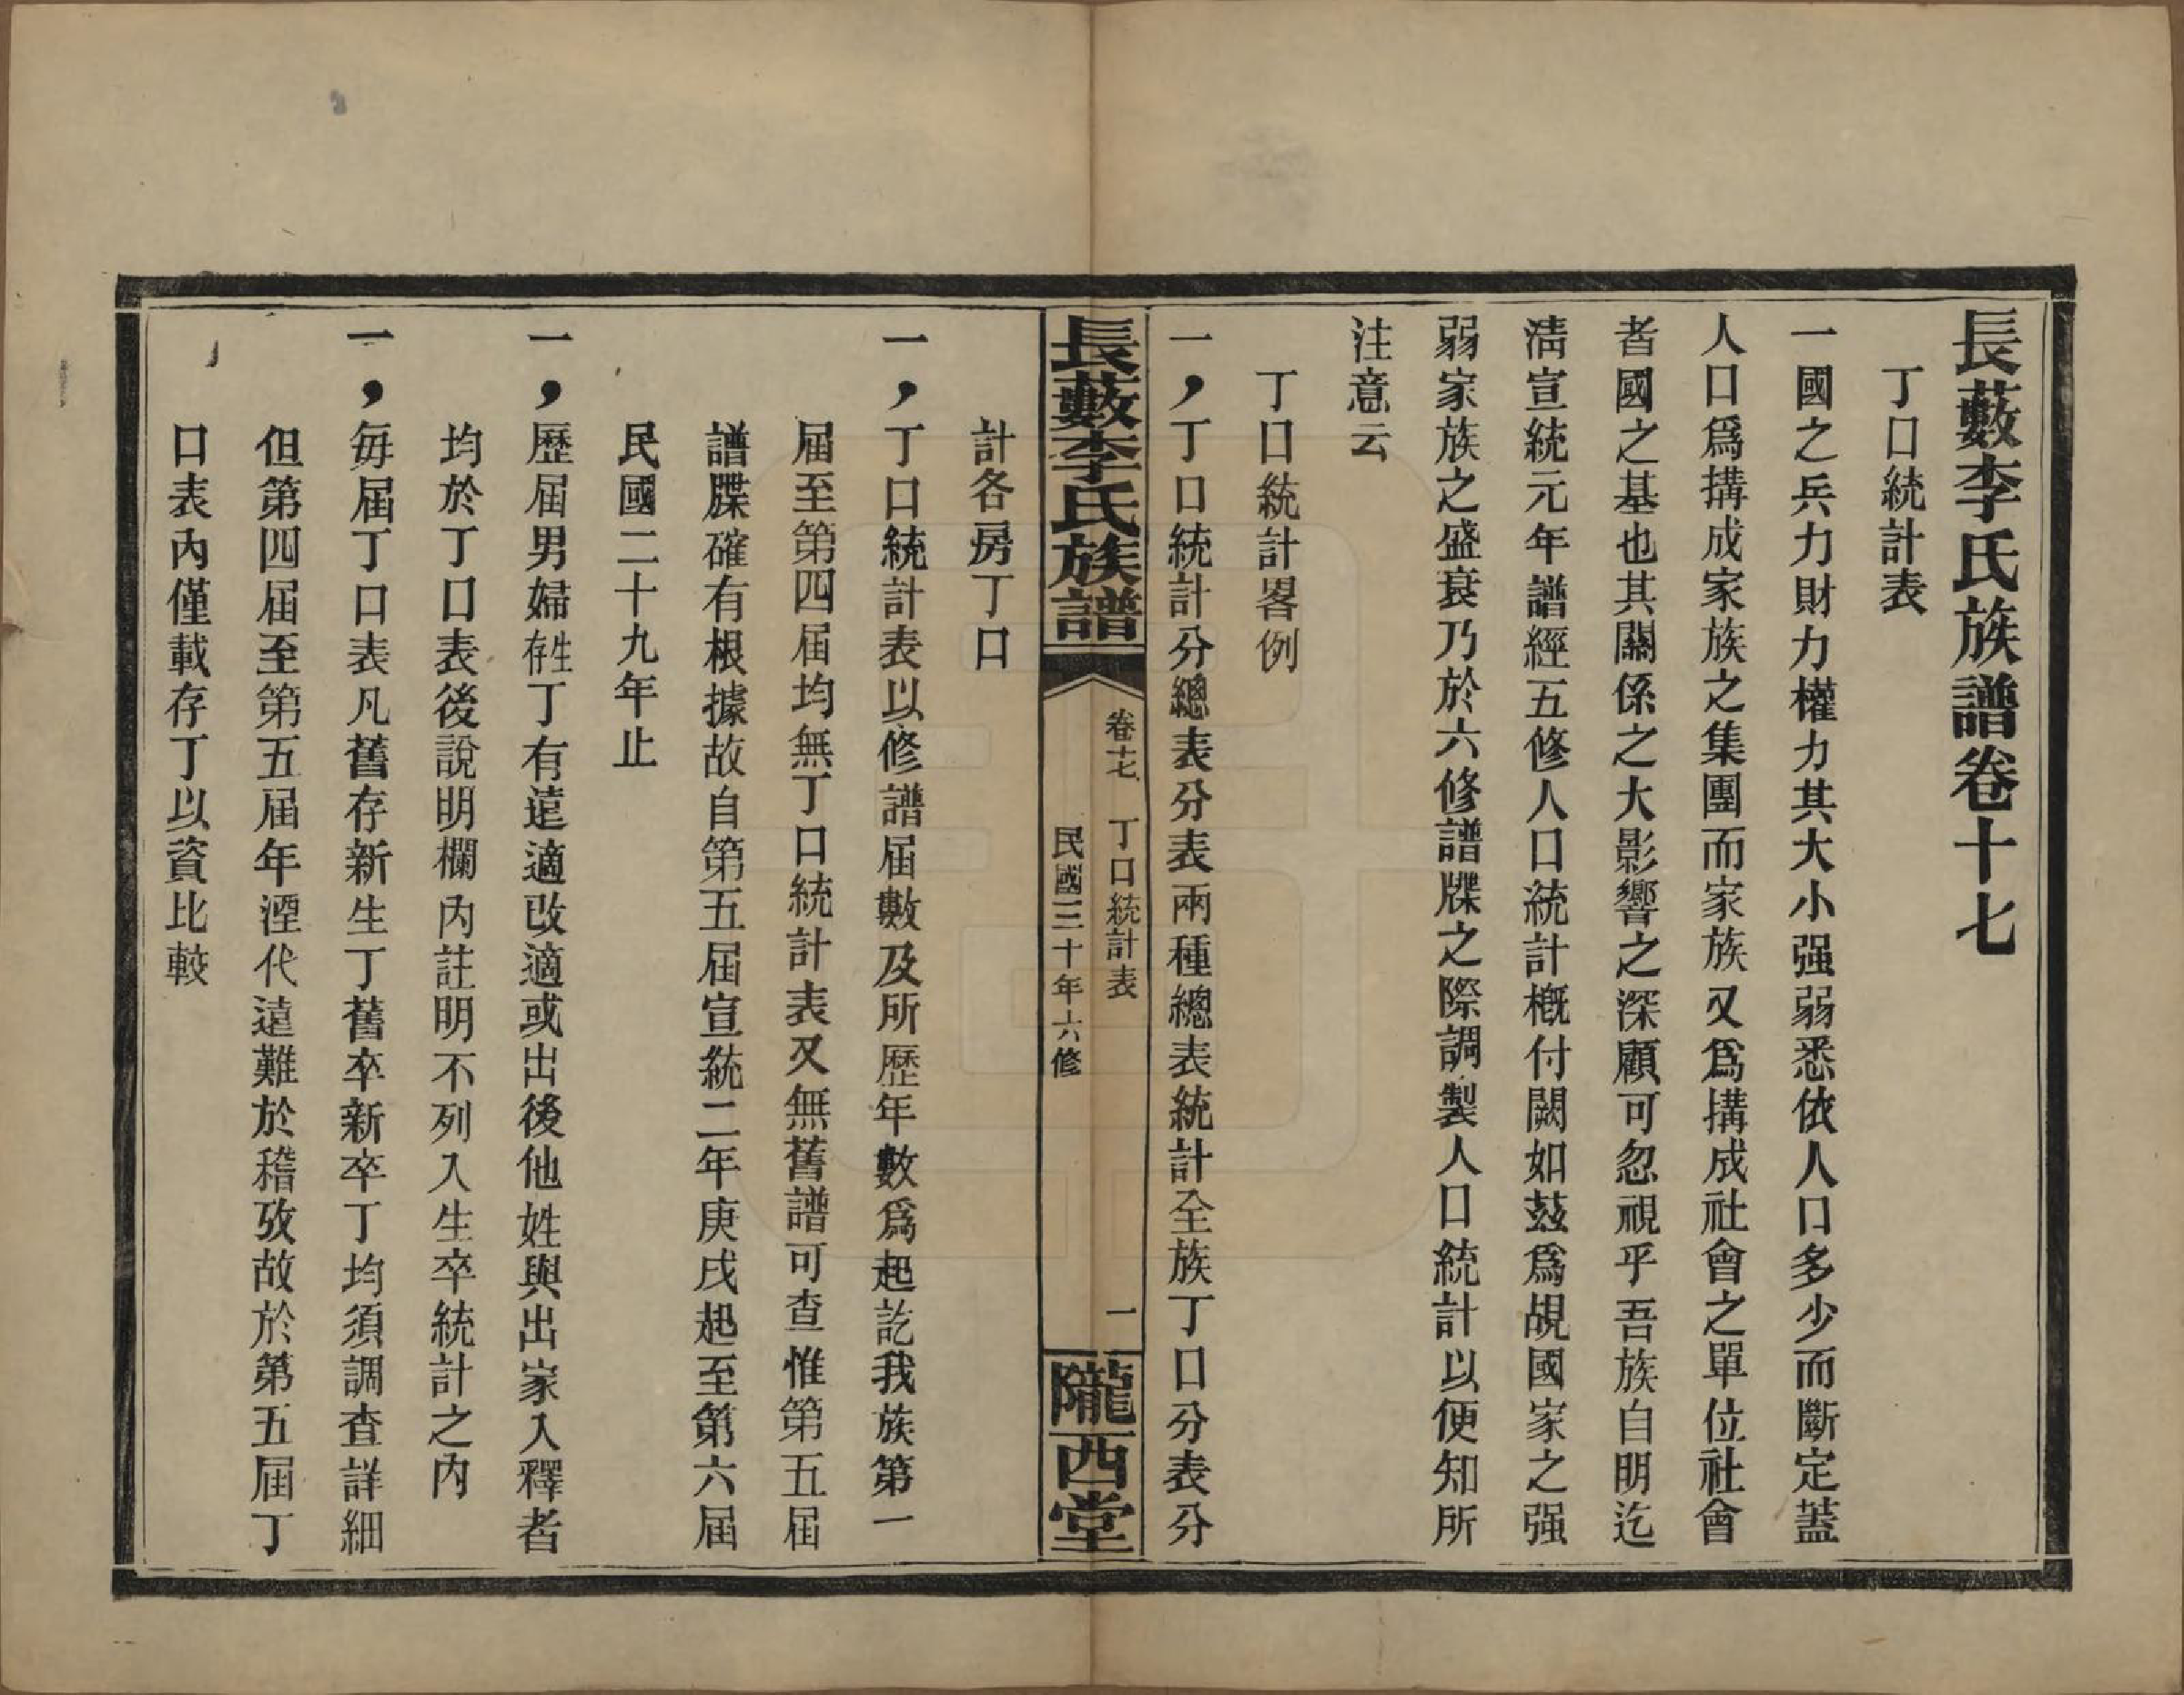 長藪李氏族譜卷十七
丁口統計表
一國之兵力財力權力其大小强弱悉依人口多少而斷定蓋
人口爲搆成家族之集團而家族又爲搆成社會之單位社會
者國之基也其關係之大影響之深顧可忽視乎吾族自明迄
淸宣統元年譜經五修人口統計槪付闕如茲爲覘國家之强
弱家族之盛衰乃於六修譜牒之際調製人口統計以便知所
注意云
丁口統計畧例
一，丁口統計分總表分表兩種總表統計全族丁口分表分
長藪李氏族譜
卷十七 丁口統計表 一
民國三十年六修
隴西堂
計各房丁口
一，丁口統計表以修譜屆數及所歷年數爲起訖我族第一
屆至第四屆均無丁口統計表又無舊譜可查惟第五屆
譜牒確有根據故自第五屆宣統二年庚戌起至第六屆
民國二十九年止
一，歷屆男婦生存丁有遠適改適或出後他姓與出家入釋者
均於丁口表後說明欄內註明不列入生卒統計之內
一，每屆丁口表凡舊存新生丁舊卒新卒丁均須調查詳細
但第四屆至第五屆年湮代遠難於稽攷故於第五屆丁
口表內僅載存丁以資比較